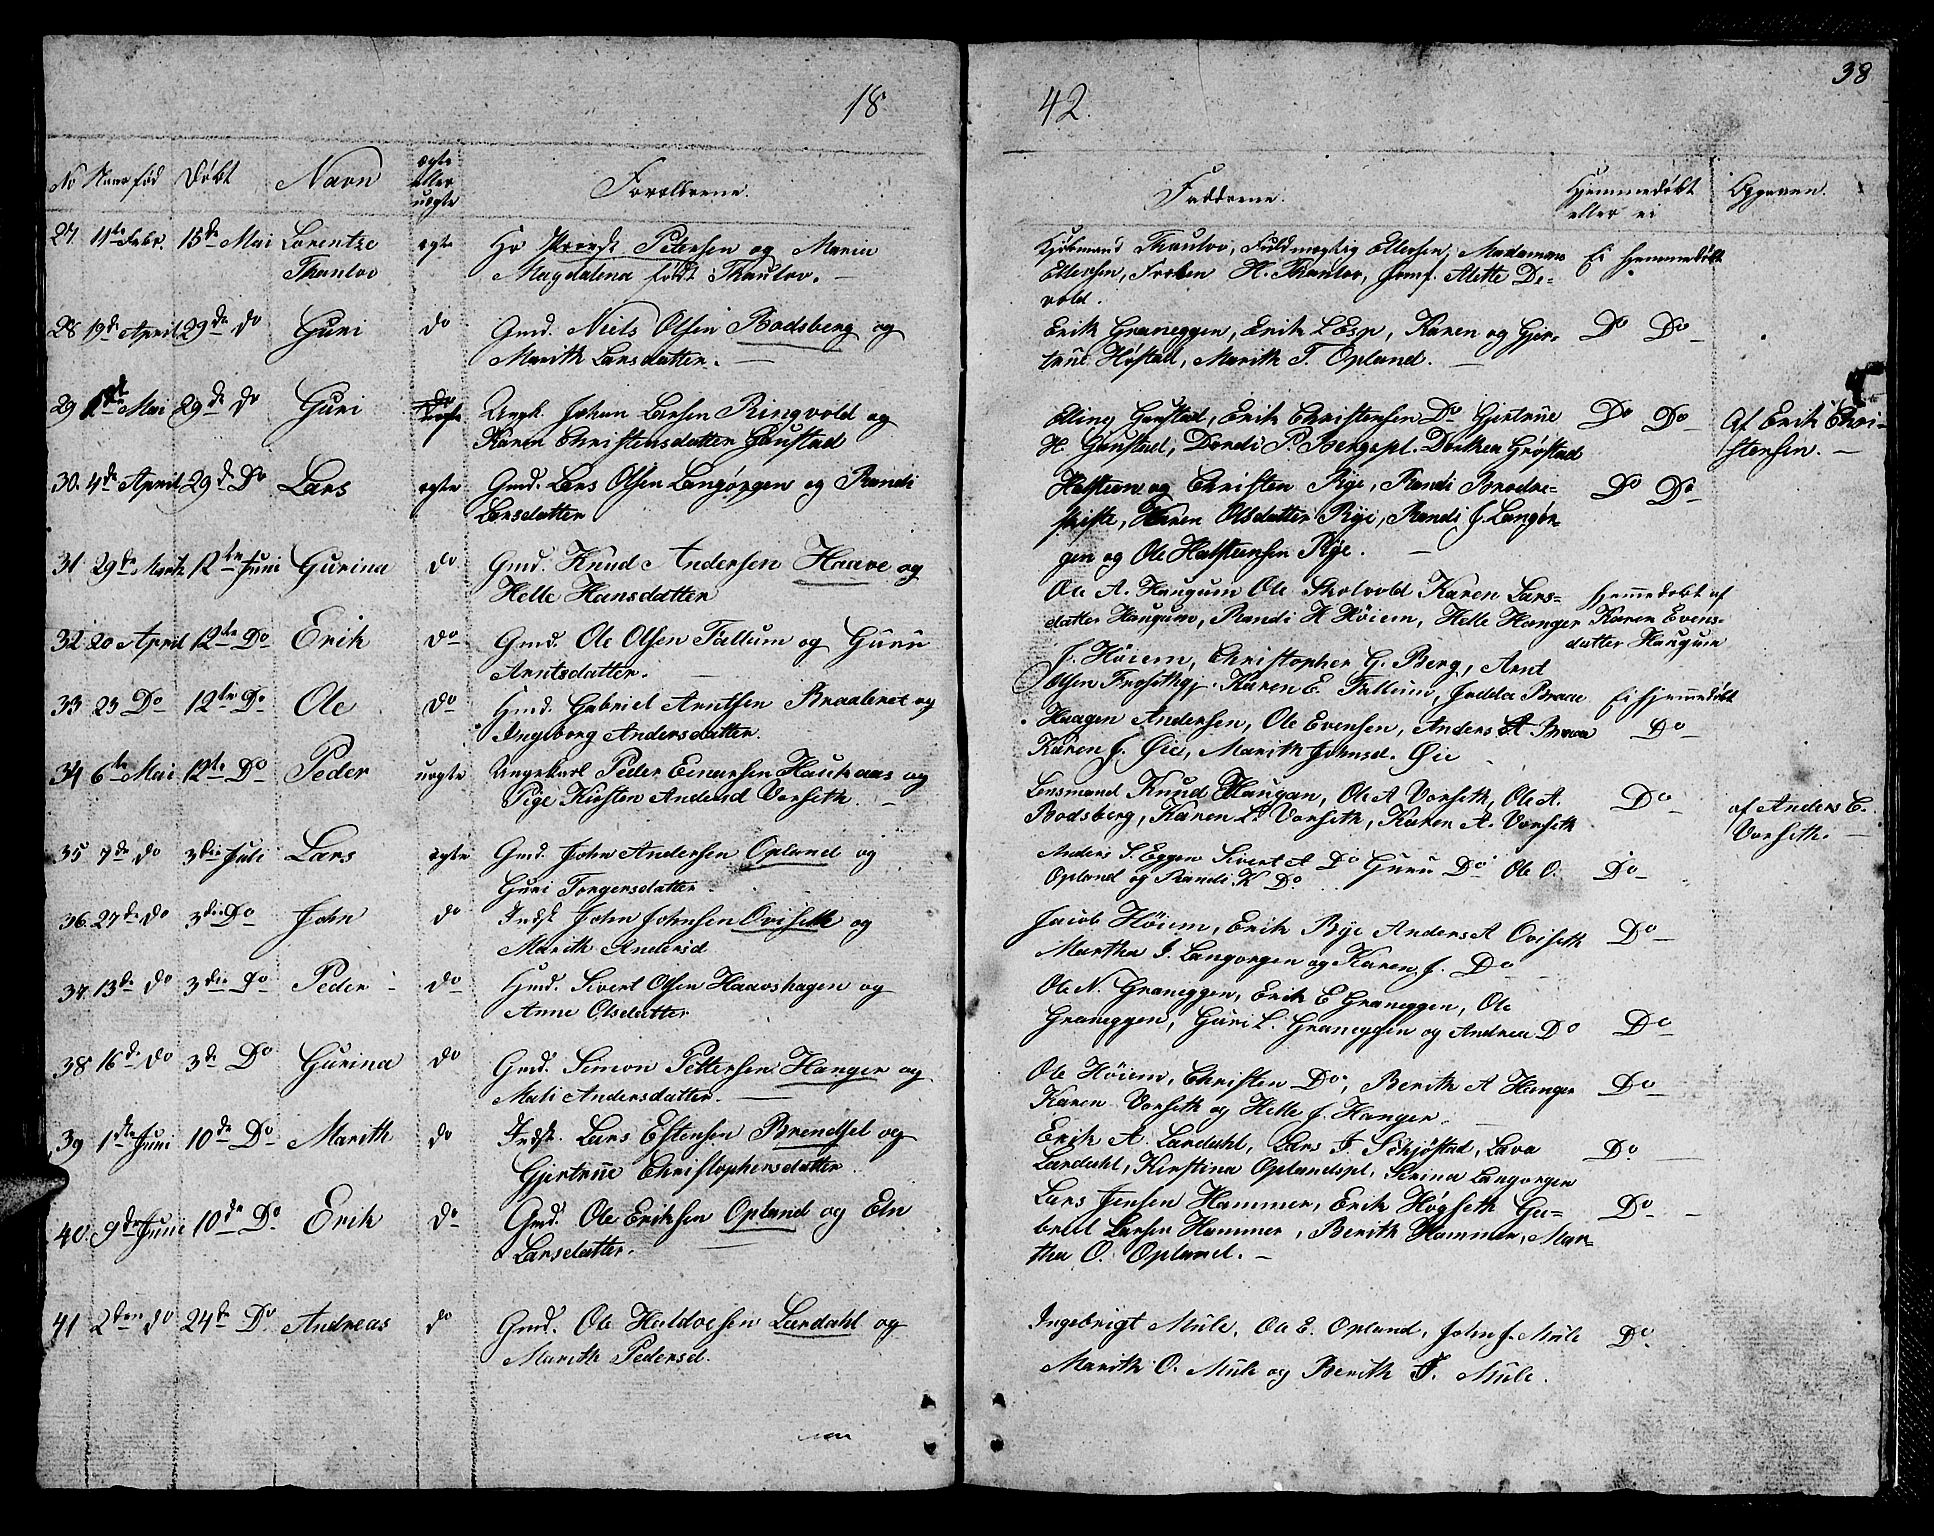 38
18
42.
No Naar fød Døbt Navn ægte eller uægte Forældrene. Faddrene. Hjemmedøbt eller ei Opgaven.
27. 11te Febr. 15de Mai Lorentze Thaulov ægte Hr Provst Petersen og Maria
Magdalena født Thaulov. —
Kjøbmand Thaulov, Fuldmægtig Ellersen, Madamen
Ellersen, Frøken H. Thaulov, Jomf. Alette De=
vold.
Ei Hjemmedøbt
28 19de April 29de do Guri do Gmd. Niels Olsen Bodsberg og
Marith Larsdatter. —
Erik Graneggen, Erik L Esp, Karen og Gjer=
trüe Høstad, Marith T. Opland. —
Do Do
29 1ste Mai 29de do Guri Ungk. Johan Larsen Ringvold og
Karen Christensdatter Gaustad
Elling Gaustad, Erik Christensen Do Gjertrüe
H. Gaustad, Dordi P. Bergspl. Dorthea Grøstad
Do Do
Af Erik Chri=
stensen. —
30. 4de April 29de Do Lars ægte Gmd. Lars Olsen Langørgen og Randi
Larsdatter
Halsteen og Christen Rye, Randi Brodre=
skifte, Karen Olsdatter Rye, Randi J. Langør=
gen og Ole Halsteensen Rye. —
Do Do
31 29de Marts 12te Juni Gurina do Gmd. Knud Andersen Haave og
Helle Hansdatter
Ole A. Haugum Ole Skolvold Karen Lars=
datter Haugum, Randi H Høiem, Helle Hanger
Hjemmedøbt af
Karen Evens=
datter Haugum
32 20 April 12te Do Erik do Gmd. Ole Olsen Tallum og Guru
Arntsdatter. —
J. Høiem, Christopher G. Berg, Arnt
Olsen Frosethgj. Karen E. Tallum, Jadda Braa
Ei hjemmedøbt
33 23 Do 12te Do Ole do Hmd. Gabriel Arntsen Braaleret og
Ingeborg Andersdatter
Haagen Andersen, Ole Evensen, Anders A Braa
Karen J. Øie, Marith Johnsd. Øie
Do
34 6te Mai 12te Do Peder uægte Ungekarl Peder Einarsen Haukaas og
Pige Kirsten Andersd Vorseth. —
Lensmand Knud Haugan, Ole A Vorseth, Ole A.
Bodsberg, Karen L. Vorseth, Karen A. Vorseth
Do
af Anders E.
Vorseth. —
35 7de do 3die Juli Lars ægte Gmd. John Andersen Opland og
Guri Torgersdatter.
Anders S. Eggen Sivert A Do Guru Do Ole O.
Opland og Randi K Do
Do
36. 27de do 3die Do John do Indst John Johnsen Oviseth og
Marith Andersd
Jacob Høiem, Erik Rye Anders A Oviseth
Martha J. Langorgen og Karen J. Do
Do
37. 13de do 3die Do Peder do Hmd. Sivert Olsen Haavshagen og
Anne Olsdatter
Ole N. Graneggen, Erik E Graneggen, Ole
Graneggen, Guri L. Graneggen og Andrea Do
Do
38 16de do 3de Do Gurina do Gmd. Simon Pettersen Hanger og
Mali Andersdatter. —
Ole Høiem, Christen Do, Berith A Hanger
Karen Vorseth og Helle J. Hanger.
Do
39 1ste Juni 10de Do Marith do Indst. Lars Estensen Brendsel og
Gjertrüe Christophersdatter
Erik A. Lardahl, Lars J. Schjøstad, Lava
Lardahl, Kirstina Oplandspl, Serina Langorgen
Do
40. 9de Juni 10de Do Erik do Gmd. Ole Eriksen Opland og Eln
Larsdatter.
Lars Jensen Hammer, Erik Høgseth Ga=
briel Larsen Hammer, Berith Hammer, Mar=
tha O. Opland. —
Do
41 2den do 24de Do Andreas do Gmd. Ole Haldorsen Lardahl og
Marith Pedersd.
Ingebrigt Mule, Ole E. Opland, John J. Mule
Marith O. Mule og Berith T. Mule.
Do